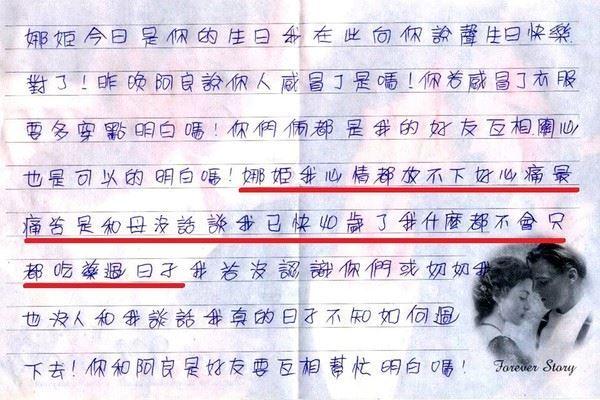 娜姬今日是你的生日我在此向你說聲生日快樂
對了!昨晚阿良說你人感冒了是嗎!你若感冒了衣服
要多穿點明白嗎!你們倆都是我的好友互相關心
也是可以的明白嗎!娜姬我心情都放不下好心痛最
痛苦是和母沒話說我已快40歲了我什麼都不會只
都吃藥過日子我若沒認識你們或奶奶我
也沒人和我談話我真的日子不知如何過
下去!你和阿良是好友要互相幫忙明白嗎!
Forever Story